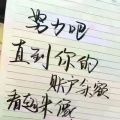 努力吧
直到你的
账户余额
看起来像